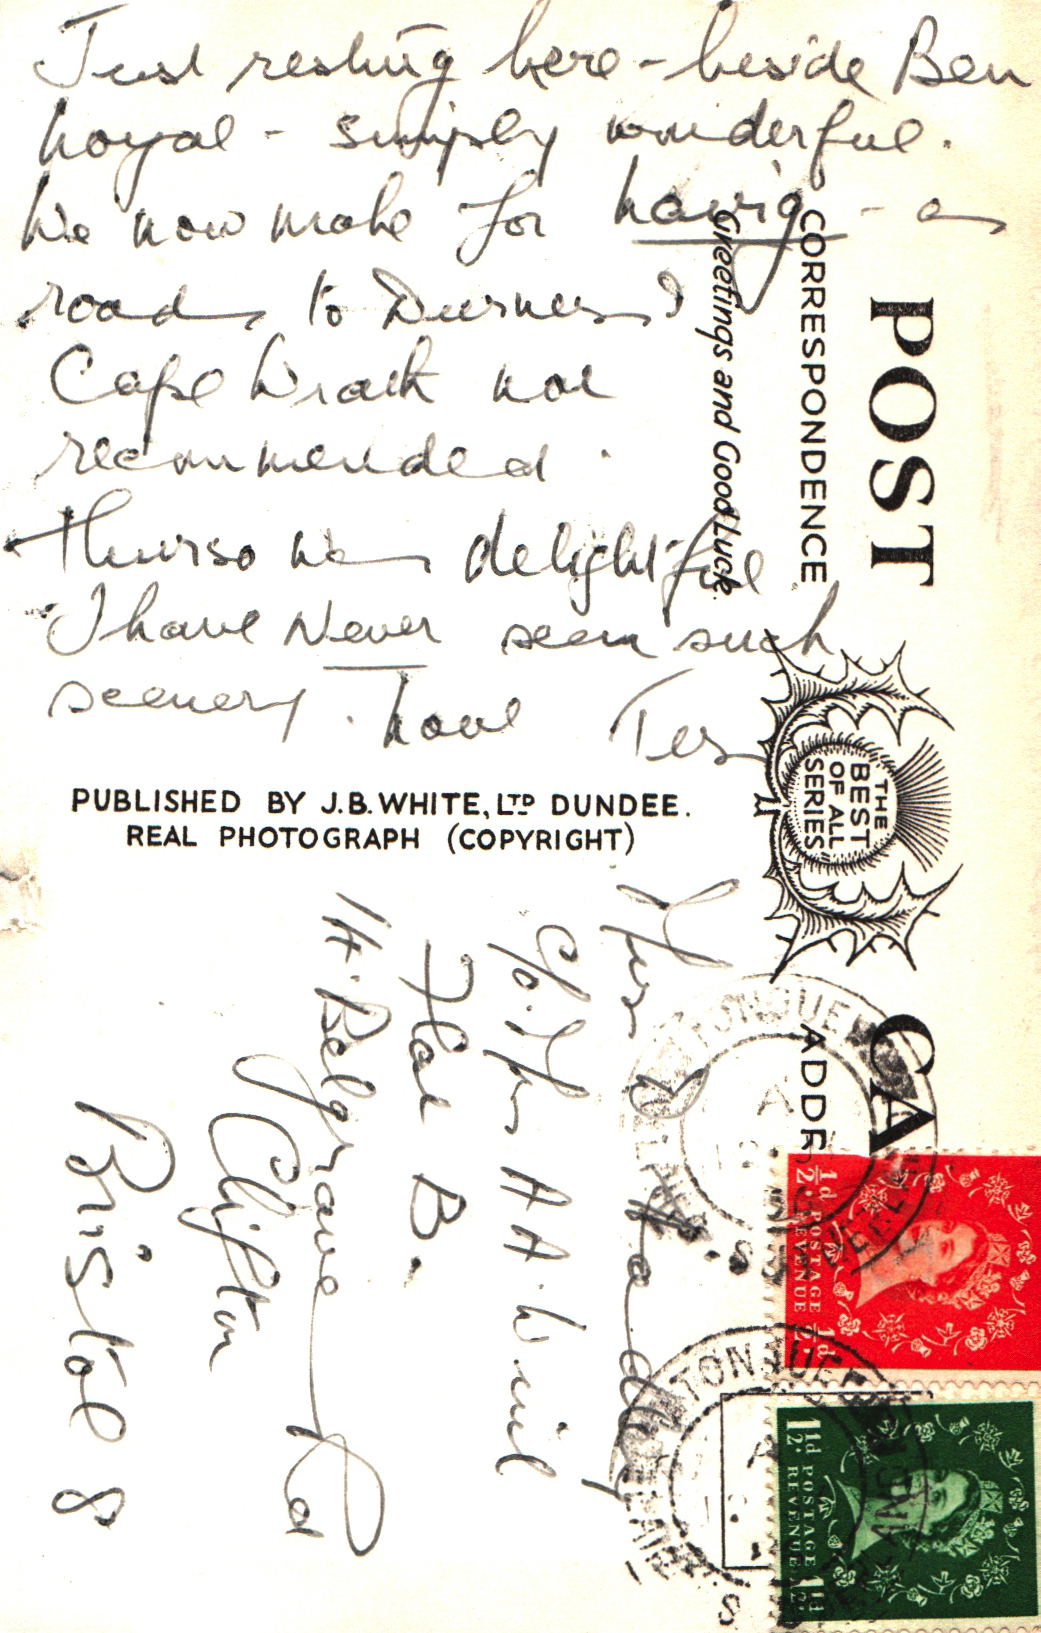 Just resting here - beside Ben
Loyal - simply wonderful.
We now make for Lairg - as
roads to Durness &
Cape Wrath not
recommended.
Thurso was delightful.
I have Never seen such
scenery. Love Tess
PUBLISHED BY J.B. WHITE, LTD DUNDEE.
REAL PHOTOGRAPH (COPYRIGHT)
POST CA
CORRESPONDENCE
ADDR
Greetings and Good Luck.
"THE
BEST
OF ALL
SERIES"
Mrs
c/o. Mrs A A.
Flat B.
14. Belgrave Rd
Clifton
Bristol 8
TONGUE
LAIRG
SUTHERLAND
½d POSTAGE ½d
REVENUE
TONGUE
LAIRG
1½d POSTAGE 1½d
REVENUE